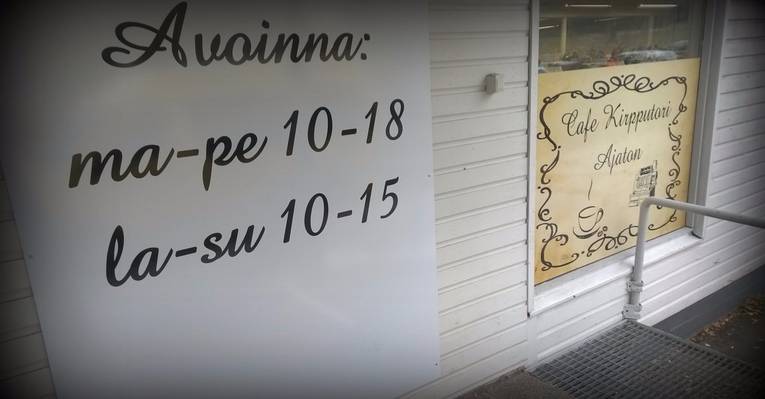 Avoinna:
ma-pe 10-18
la-su 10-15
Cafe Kirpputori
Ajaton